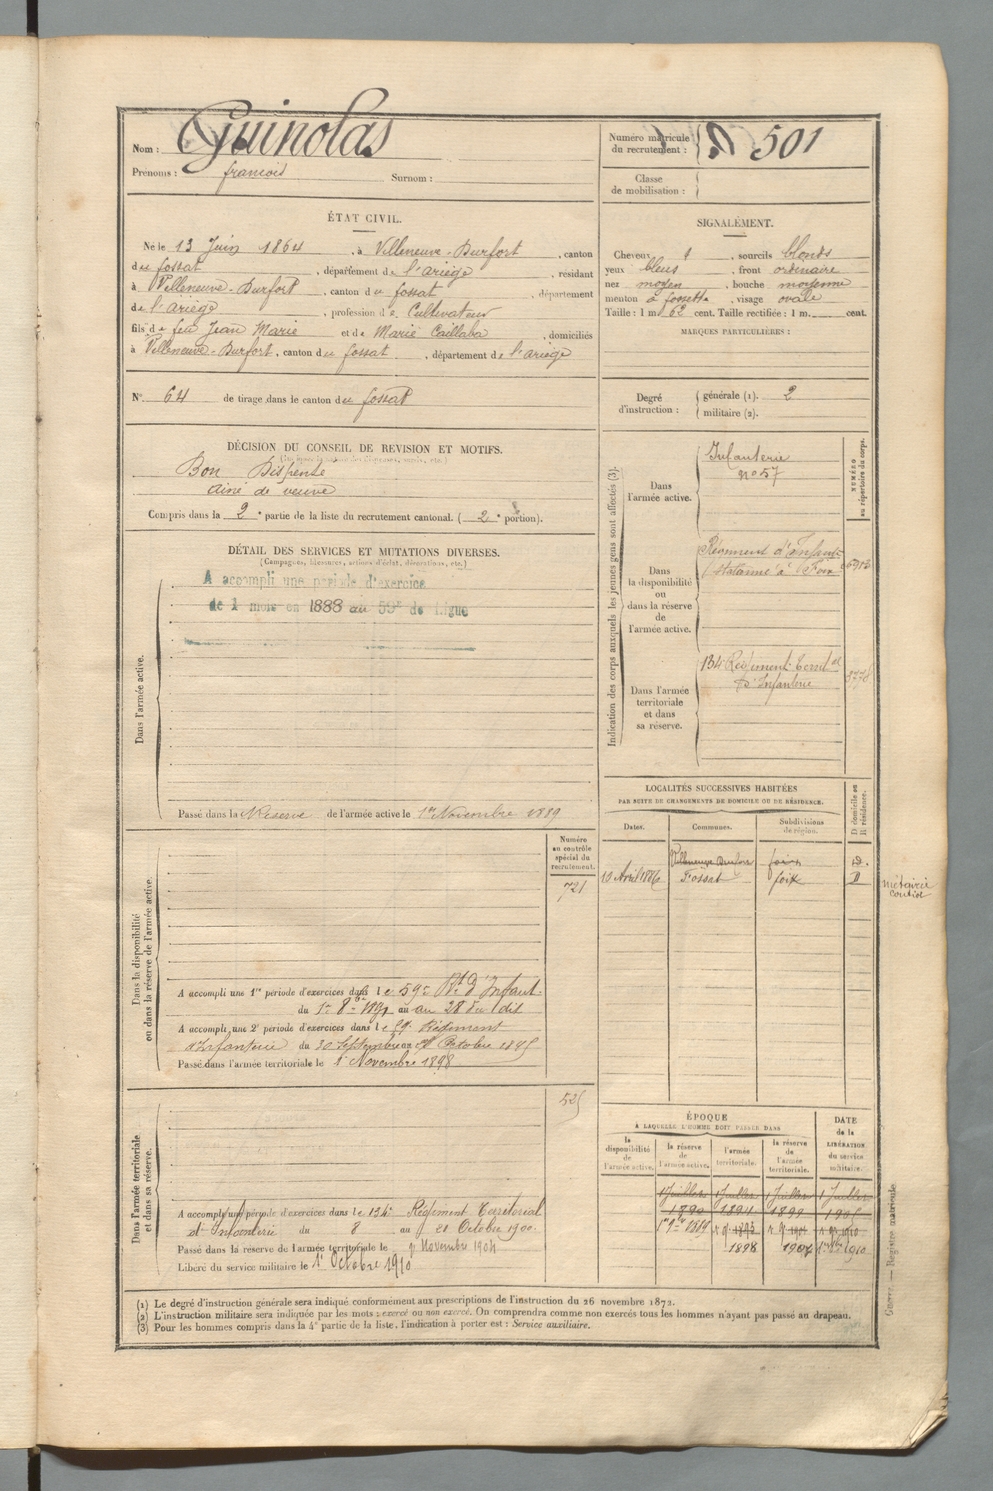 Nom : Guinolas
Prénoms : francois Surnom :
Numéro matricule
du recrutement : 501
Classe
de mobilisation :
ÉTAT CIVIL.
Né le 13 Juin 1864, à Villeneuve-Durfort, canton
du fossat, département de l'Ariège, résidant
à Villeneuve-Durfort, canton du fossat, département
de l'Ariège, profession de Cultivateur
fils de feu Jean Marie et de Marie Caillaba, domiciliés
à Villeneuve-Durfort, canton du fossat, département de l'Ariège
N° 64 de tirage dans le canton du fossat
SIGNALEMENT.
Cheveux, sourcils blonds
yeux bleus, front ordinaire
nez moyen, bouche moyenne
menton à fossette, visage ovale
Taille : 1 m 62 cent. Taille rectifiée : 1 m. cent.
MARQUES PARTICULIÈRES :
Degré
d'instruction :
générale (1). 2
militaire (2).
DÉCISION DU CONSEIL DE REVISION ET MOTIFS.
Bon Dispensé
ainé de veuve
Compris dans la 2e partie de la liste du recrutement cantonal. ( 2e portion).
DÉTAIL DES SERVICES ET MUTATIONS DIVERSES.
(Campagnes, blessures, actions d'éclat, décorations, etc.)
Dans l'armée active.
A accompli une période d'exercice
de 1 mois en 1888 au 59e de ligne
Passé dans la Réserve de l'armée active le 1er Novembre 1889
Indication des corps auxquels les jeunes gens sont affectés (3).
NUMÉRO
au répertoire du corps.
Dans
l'armée active.
Infanterie
n° 57
Dans
la disponibilité
ou
dans la réserve
de
l'armée active.
Régiment d'Infant
stationné à Foix
Dans l'armée
territoriale
et dans
sa réserve.
134e Régiment Territal
d'Infanterie
LOCALITÉS SUCCESSIVES HABITÉES
PAR SUITE DE CHANGEMENTS DE DOMICILE OU DE RÉSIDENCE.
D domicile ou
R résidence.
Dates. Communes. Subdivisions
de région.
Villeneuve Durfort foix D.
10 Avril 1886 Fossat foix D
métairie
Dans la disponibilité
ou dans la réserve de l'armée active.
Numéro
au contrôle
spécial du
recrutement.
721
A accompli une 1re période d'exercices dans le 59e Rt d'Infant.
du 1er 8bre au 28 du dit
A accompli une 2e période d'exercices dans le 59e Régiment
d'Infanterie du 30 Septembre au Octobre 1895
Passé dans l'armée territoriale le 1er Novembre 1898
Dans l'armée territoriale
et dans sa réserve.
525
A accompli une période d'exercices dans le 134e Régiment Territorial
d'Infanterie du 8 au 21 Octobre 1900.
Passé dans la réserve de l'armée territoriale le Novembre 1904
Libéré du service militaire le 1er Octobre 1910
ÉPOQUE
À LAQUELLE L'HOMME DOIT PASSER DANS
DATE
de la
LIBÉRATION
du service
militaire.
la
disponibilité
de
l'armée active.
la réserve
de
l'armée active.
l'armée
territoriale.
la réserve
de
l'armée
territoriale.
1 Juillet 1 Juillet 1 Juillet 1 Juillet
1890 1894 1899 1905
1898 1904 1910
Guerre. — Registre matricule.
(1) Le degré d'instruction générale sera indiqué conformément aux prescriptions de l'instruction du 26 novembre 1872.
(2) L'instruction militaire sera indiquée par les mots : exercé ou non exercé. On comprendra comme non exercés tous les hommes n'ayant pas passé au drapeau.
(3) Pour les hommes compris dans la 4e partie de la liste, l'indication à porter est : Service auxiliaire.